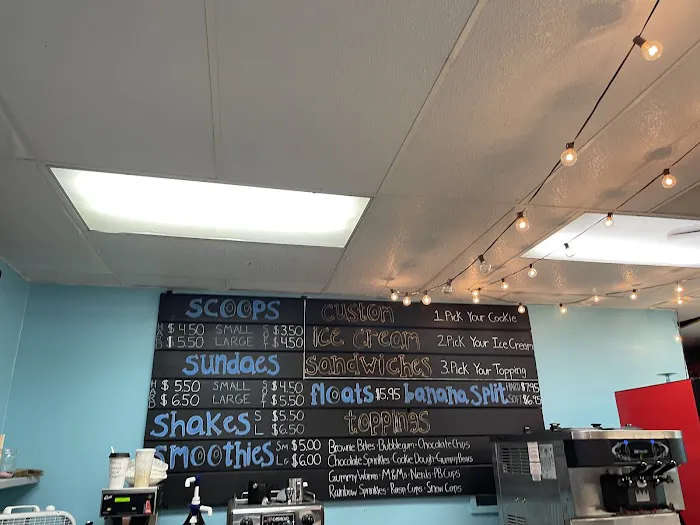 SCOOPS
H $4.50 SMALL S $3.50
B $5.50 LARGE F $4.50
Sundaes
H $5.50 SMALL S $4.50
B $6.50 LARGE F $5.50
Shakes S $5.50
L $6.50
Smoothies Sm $5.00
LG $6.00
Custom
ice cream
sandwiches
1. Pick Your Cookie
2. Pick Your Ice Cream
3. Pick Your Topping
floats $5.95 banana Split HARD $7.95
SOFT $6.95
toppings
Brownie Bites · Bubblegum · Chocolate Chips
Chocolate Sprinkles · Cookie Dough · Gummy Bears
Gummy Worms · M&Ms · Nerds · PB Cups
Rainbow Sprinkles · Reese Cups · Snow Caps